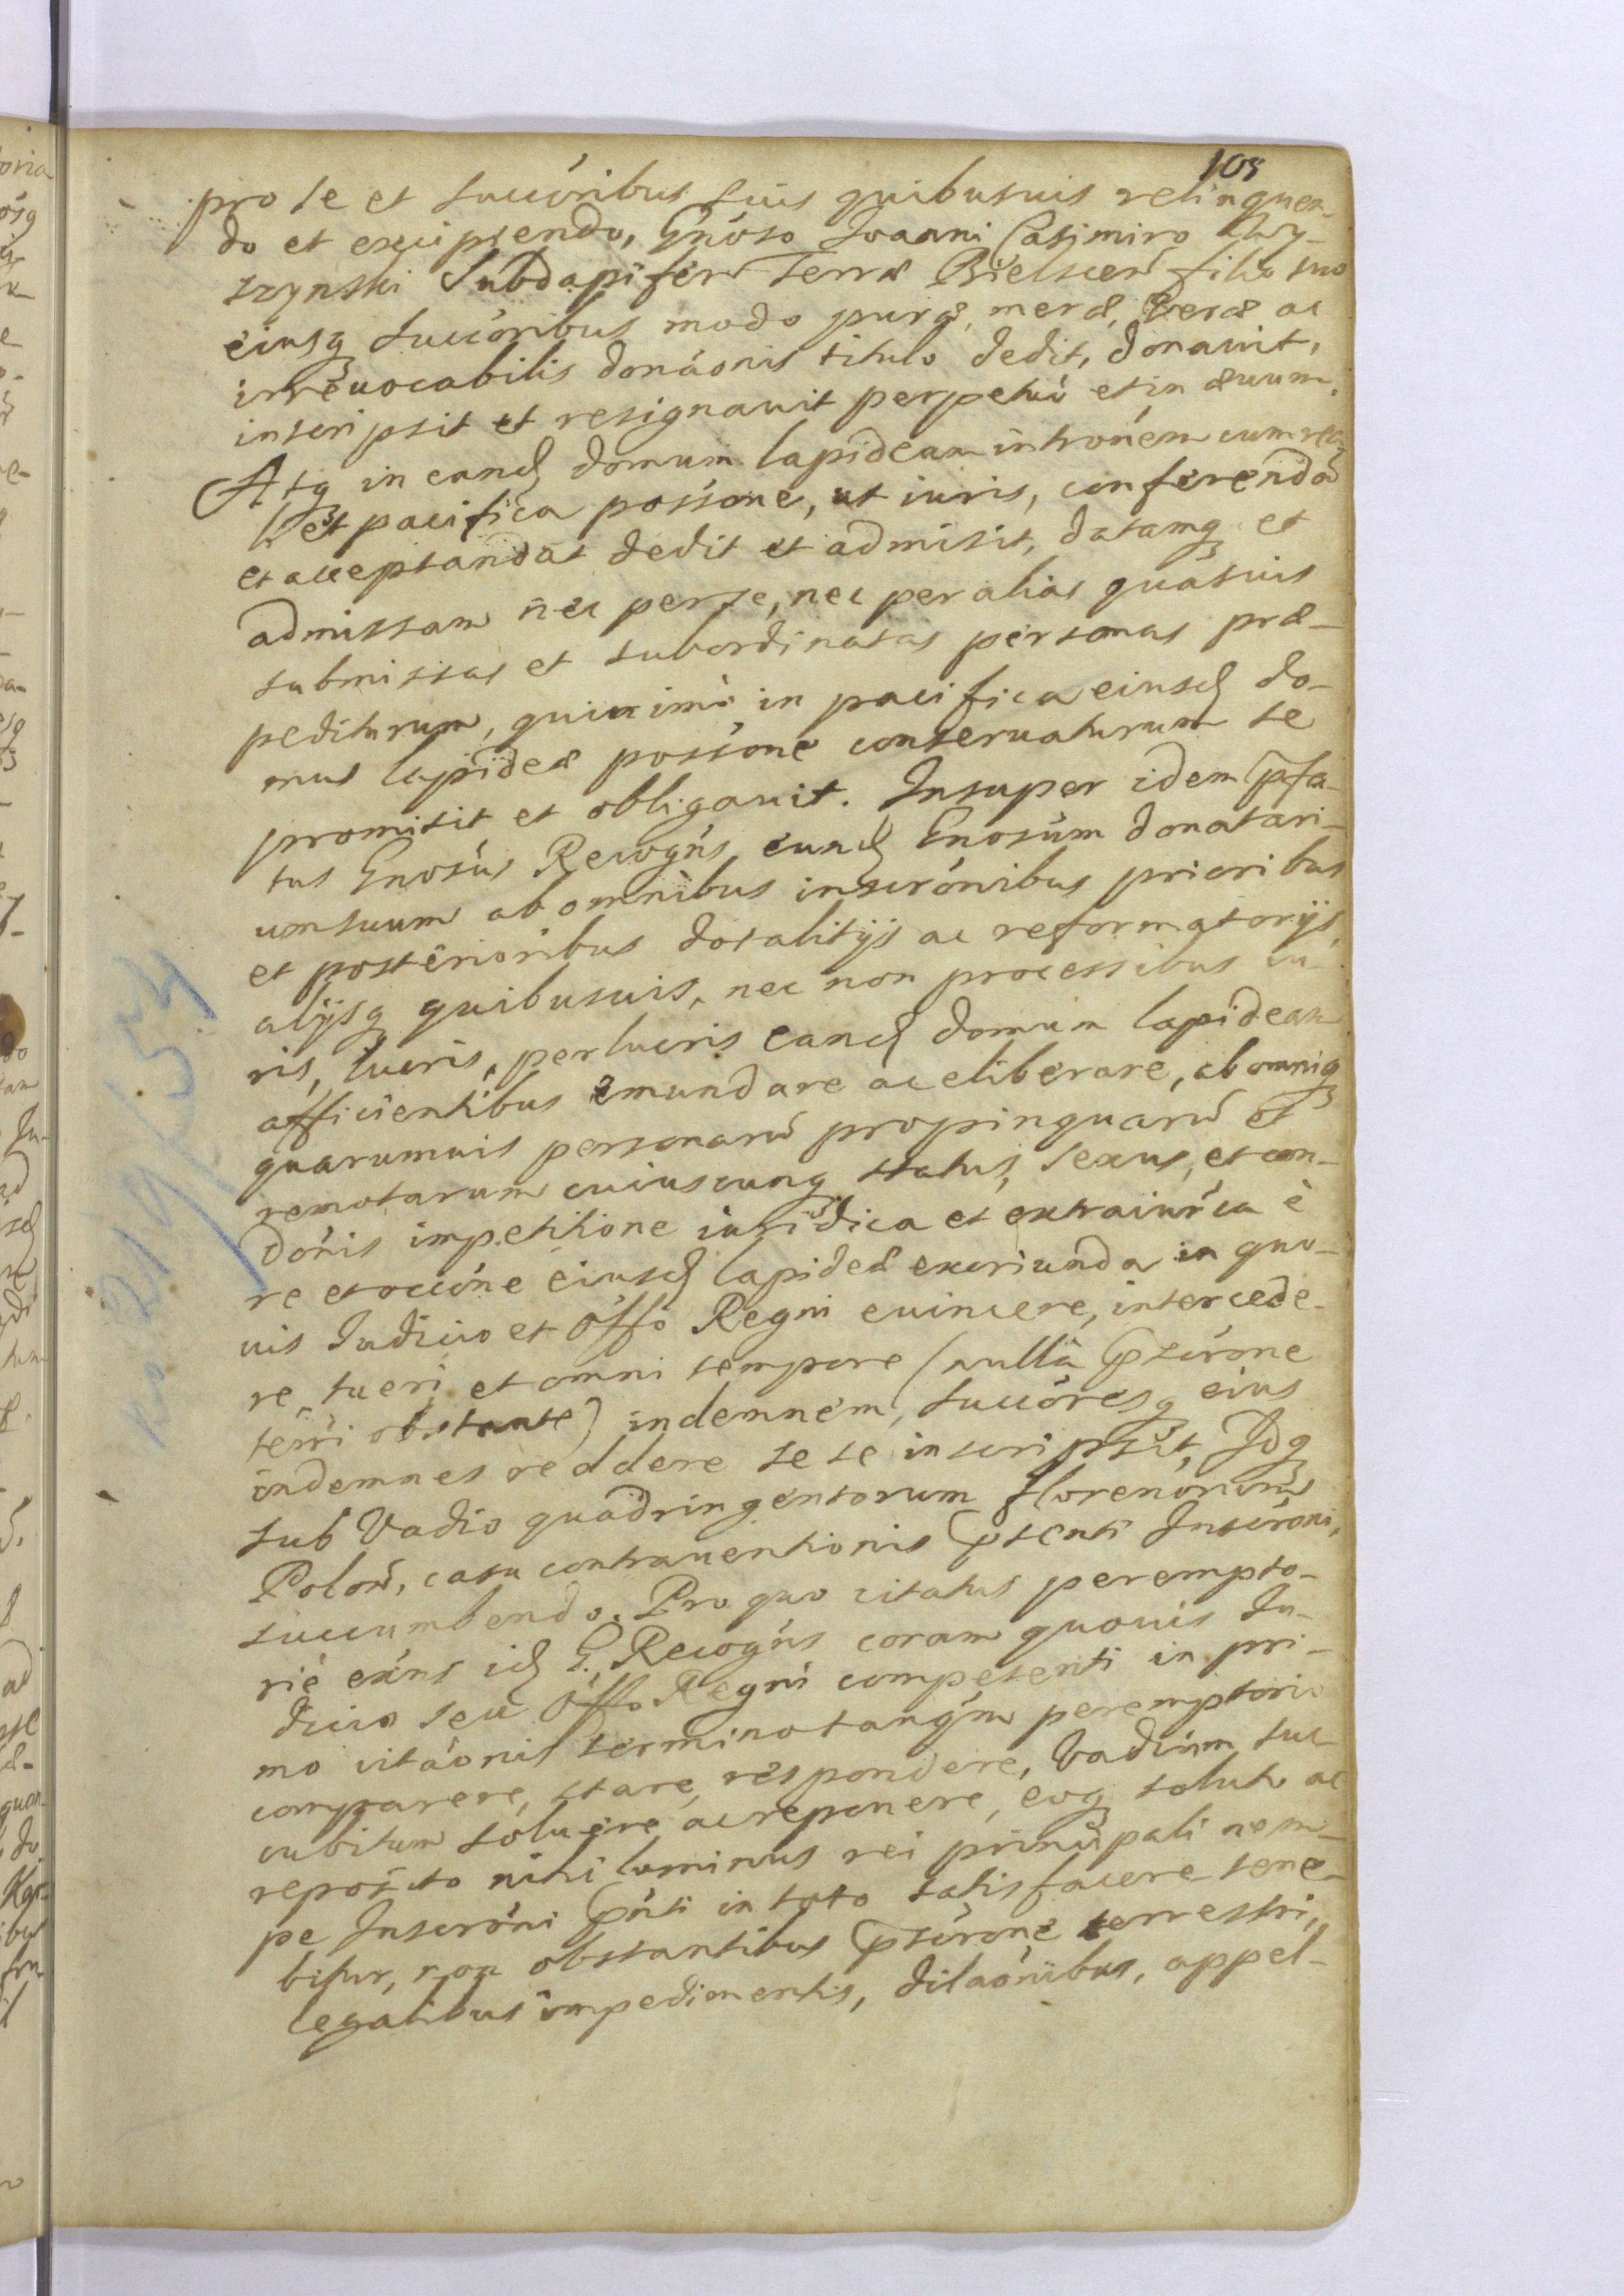 108
pro se et succôribus suis quibusuis relinquen-
do et excipiendo, Gnôso Ioanni Casimiro
szynski Subdapifero Terræ Bielscen̄ filio suo
eiusq succôribus modo puræ, meræ, veræ ac
irreuocabilis donâonis titulo dedit, donauit,
inscripsit et resignauit perpetuò et in æuum.
Atq in eand domum lapideam intrônem cum rea
li et pacifica possône, ut iuris, conferendā
et acceptandā dedit et admisit, datamq et
admissam nec per se, nec per alias quasuis
submissas et subordinatas personas præ-
pediturum, quinimò in pacifica eiusd do-
mus lapideæ possône conseruaturum se
promisit et obligauit. Insuper idem p̄fa-
tus Gnôsus Recogñs, eund Gnôsum donatari-
um suum ab omnibus inscrônibus prioribus
et posterioribus dotalitijs ac reformatorijs,
alijsq quibusuis, nec non processibus iu-
ris, lucris, perlucris eand domum lapideam
afficientibus emundare ac eliberare, ab omniq
quarumuis personarū propinquarū et
remotarum cuiuscunq status, sexus, et con-
dônis impetitione iuridica et extraiurîca è
re et occône eiusd lapideæ exoriunda in quo-
uis Iudicio et Offô Regni euincere, intercede-
re, tueri et omni tempore (nullâ p̄scrône
terr̄i obstante) indemnem, succôresq eius
indemnes reddere sese inscripsit, Idq
sub Vadio quadringentorum florenorum
Polon̄, casu contrauentionis p̄senti Inscrôni,
succumbendo. Pro quo citatus perempto-
riè exñs id G. Recogñs coram quouis Iu-
dicio seu Offô Regni competenti in pri-
mo citâonis termino tanq̄m peremptorio
comparere, stare, respondere, Vadium suc-
cubitum soluere ac reponere, eoq soluto ac
reposito nihilominus rei principali nem-
pe Inscrôni p̄nti in toto satisfacere tene-
bitur, non obstantibus p̄scrône terrestri,
legalibus impedimentis, dilaônibus, appel-